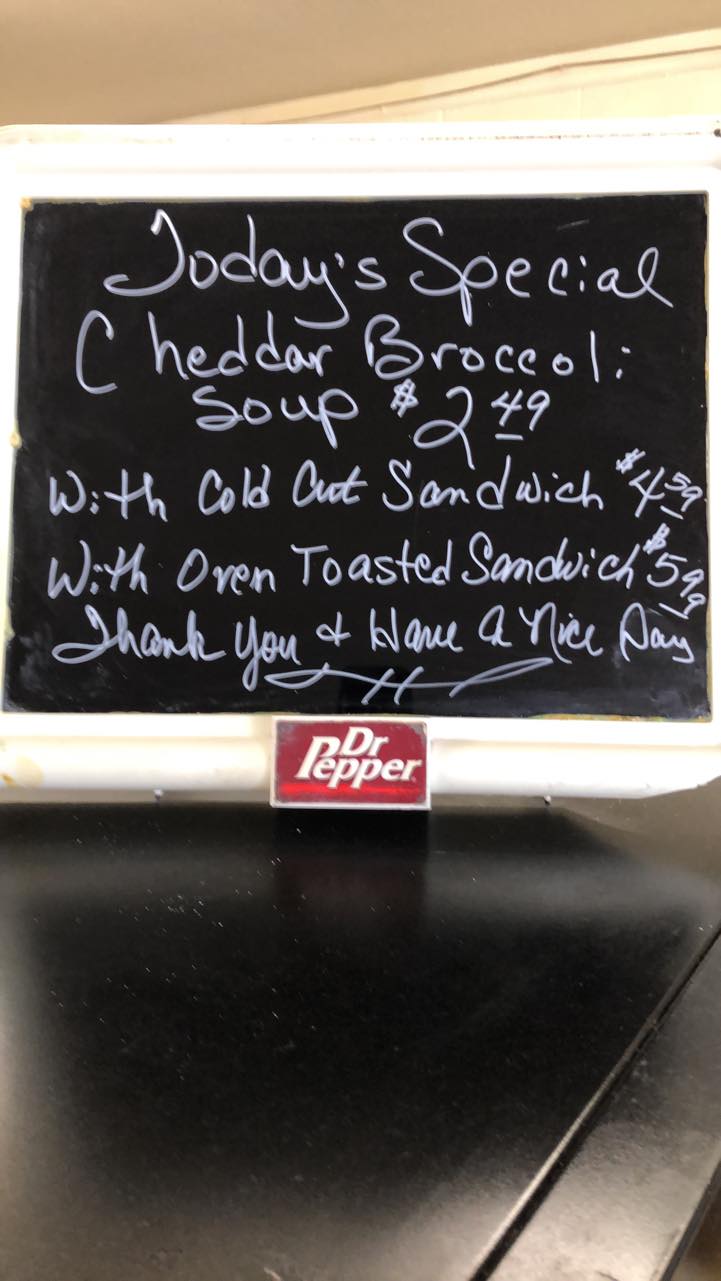 Today's Special
Cheddar Broccoli
Soup $2.49
With Cold Cut Sandwich $4.59
With Oven Toasted Sandwich $5.99
Thank You & Have A Nice Day
Dr
Pepper